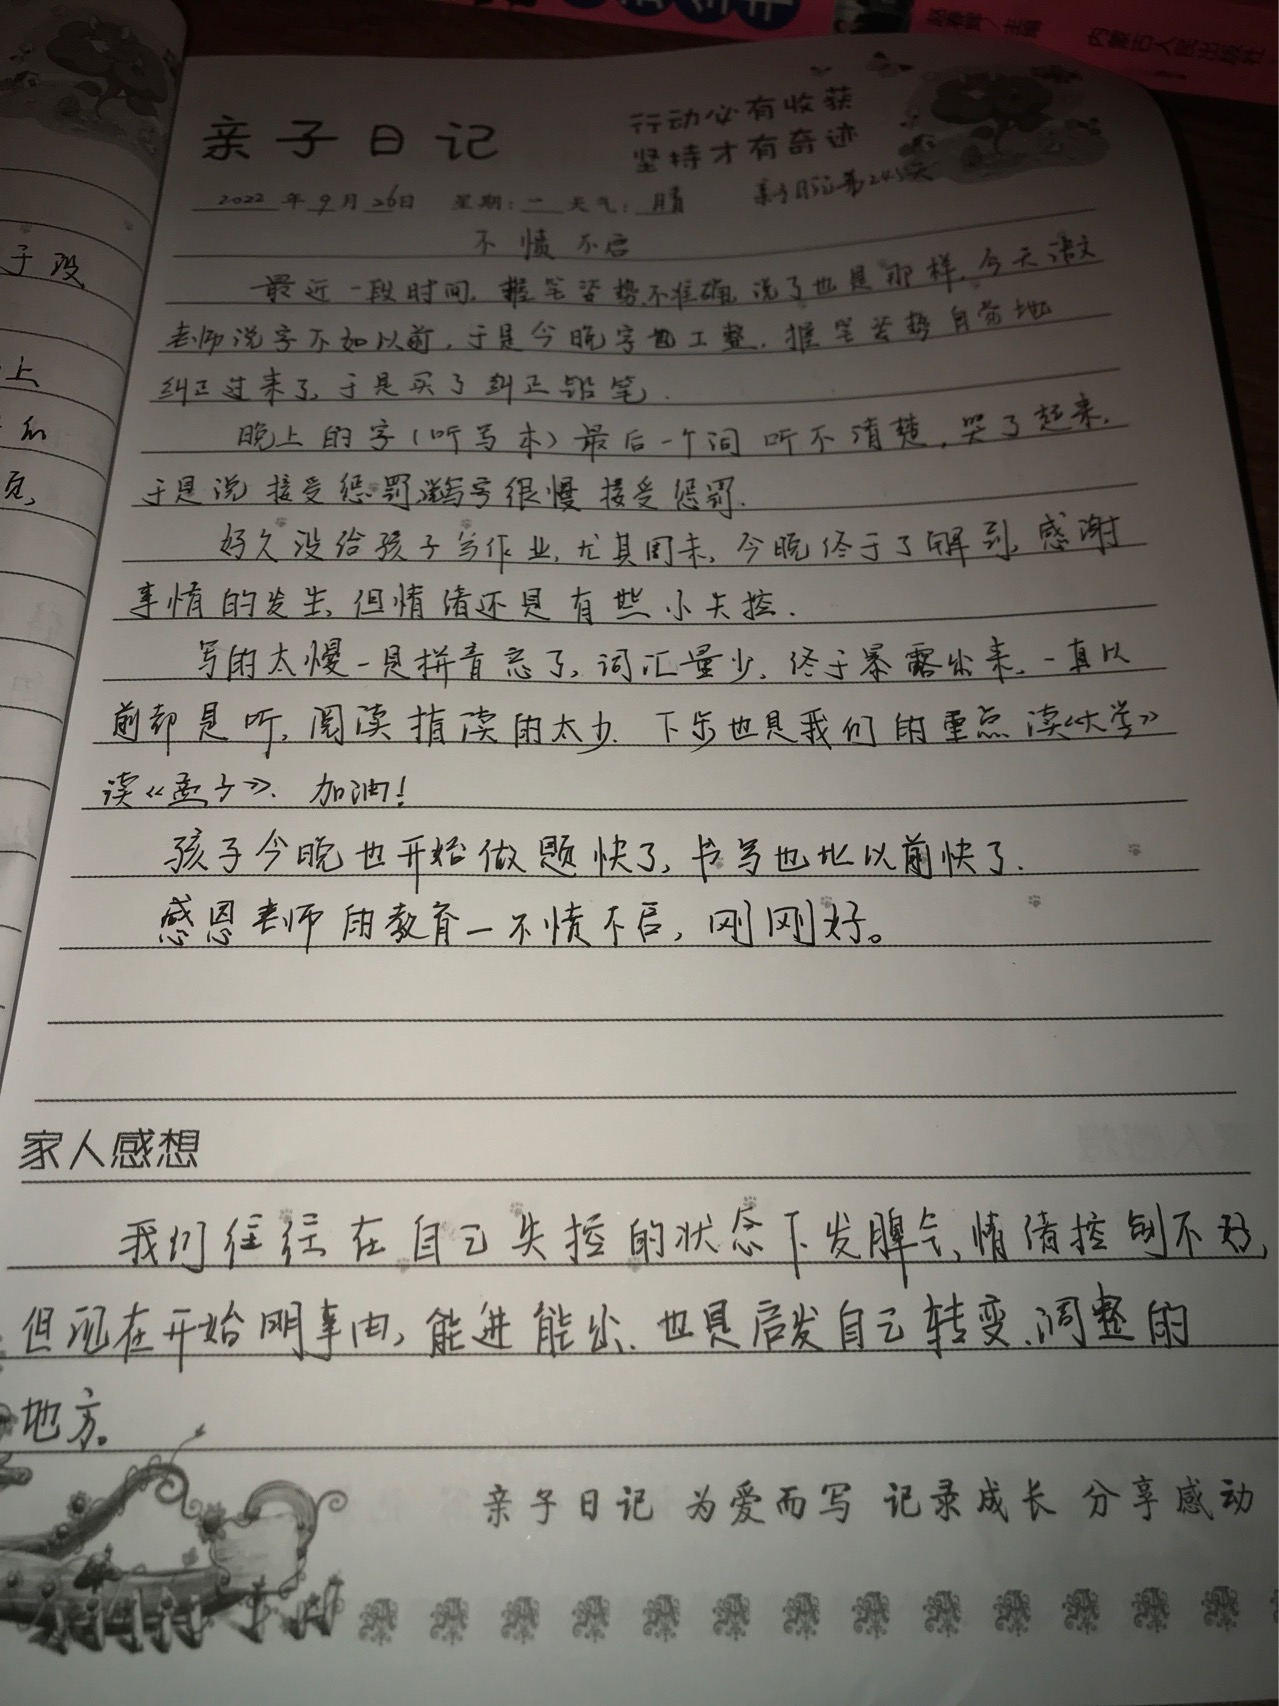 赵春晖/主编
内蒙古人民出版社
亲子日记
行动必有收获
坚持才有奇迹
2022年9月26日 星期:一 天气:晴 亲子日记第245天
不愤不启
最近一段时间,握笔姿势不准确,说了也是那样,今天语文
老师说字不如以前,于是今晚字也工整,握笔姿势自觉地
纠正过来了,于是买了纠正铅笔.
晚上的字(听写本)最后一个词听不清楚,哭了起来,
于是说接受惩罚,写字很慢接受惩罚.
好久没给孩子写作业,尤其周末,今晚终于了解到,感谢
事情的发生,但情绪还是有些小失控.
写的太慢一是拼音忘了,词汇量少,终于暴露出来,一直以
前都是听,阅读指读的太少.下步也是我们的重点读《大学》
读《孟子》.加油!
孩子今晚也开始做题快了,书写也比以前快了.
感恩老师的教育—不愤不启,刚刚好。
家人感想
我们往往在自己失控的状态下发脾气,情绪控制不好,
但现在开始明事由,能进能出.也是启发自己转变、调整的
地方。
亲子日记 为爱而写 记录成长 分享感动
子没
上